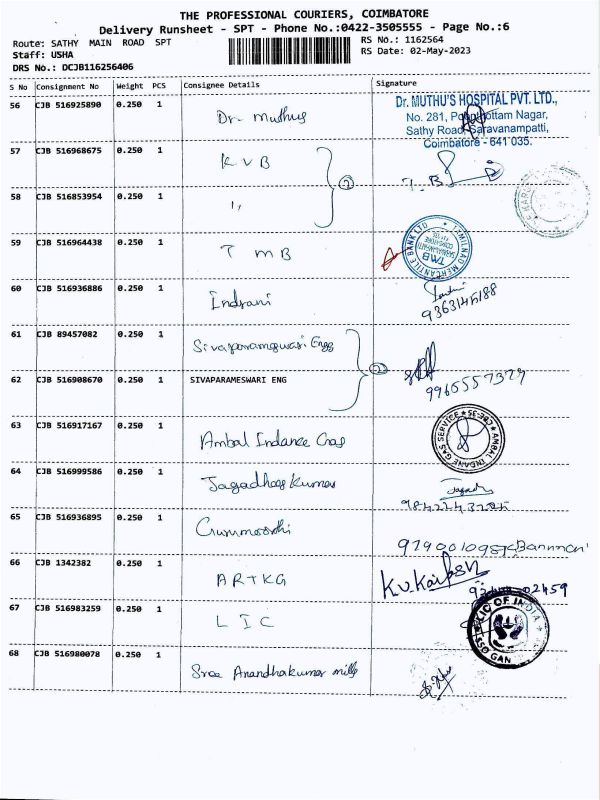 THE PROFESSIONAL COURIERS, COIMBATORE
Delivery Runsheet - SPT - Phone No.:0422-3505555 - Page No.:6
Route: SATHY MAIN ROAD SPT
RS No.: 1162564
Staff: USHA
RS Date: 02-May-2023
DRS No.: DCJB116256406
S No Consignment No Weight PCS Consignee Details Signature
56 CJB 516925890 0.250 1 Dr. Muthus
Dr. MUTHU'S HOSPITAL PVT. LTD.,
No. 281, Nagar,
Sathy Road, Saravanampatti,
Coimbatore - 641 035.
57 CJB 516968675 0.250 1 KVB
58 CJB 516853954 0.250 1 "
2
T.B
59 CJB 516964438 0.250 1 TMB
TAMILNAD MERCANTILE BANK LTD
TMB
60 CJB 516936886 0.250 1 Indrani
9363145188
61 CJB 89457082 0.250 1 Sivaparameswari Engg
62 CJB 516908670 0.250 1 SIVAPARAMESWARI ENG
2
63 CJB 516917167 0.250 1 Ambal Indance Gas
AMBAL INDANE GAS SERVICE
64 CJB 516999586 0.250 1 Jagadhees Kumar
65 CJB 516936895 0.250 1 Gurumoorthi
66 CJB 1342382 0.250 1 ARTKG
67 CJB 516983259 0.250 1 LIC
LIC OF INDIA
68 CJB 516980078 0.250 1 Sree Anandhakumar mills